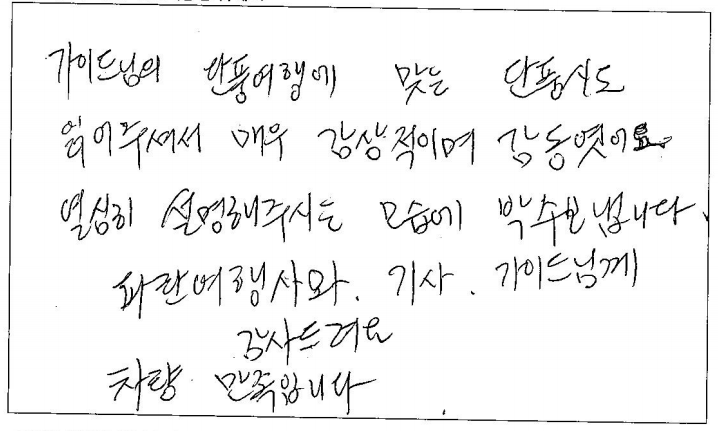 가이드님의 단풍여행에 맞는 단풍시도
읽어주셔서 매우 감상적이며 감동엿어요.
열심히 설명해주시는 모습에 박수보냅니다.
파란여행사와. 기사. 가이드님께
감사드려요
차량 만족입니다